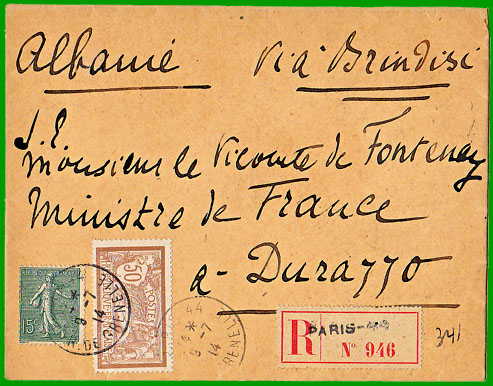 Albanie via Brindisi
S. E.
Monsieur le Vicomte de Fontenay
Ministre de France
a - Durazzo
15
50
POSTES
44
* 8 -7 14
* 8 -7 14
DE GRENELLE
GRENELLE
R PARIS-44
Nº 946
341